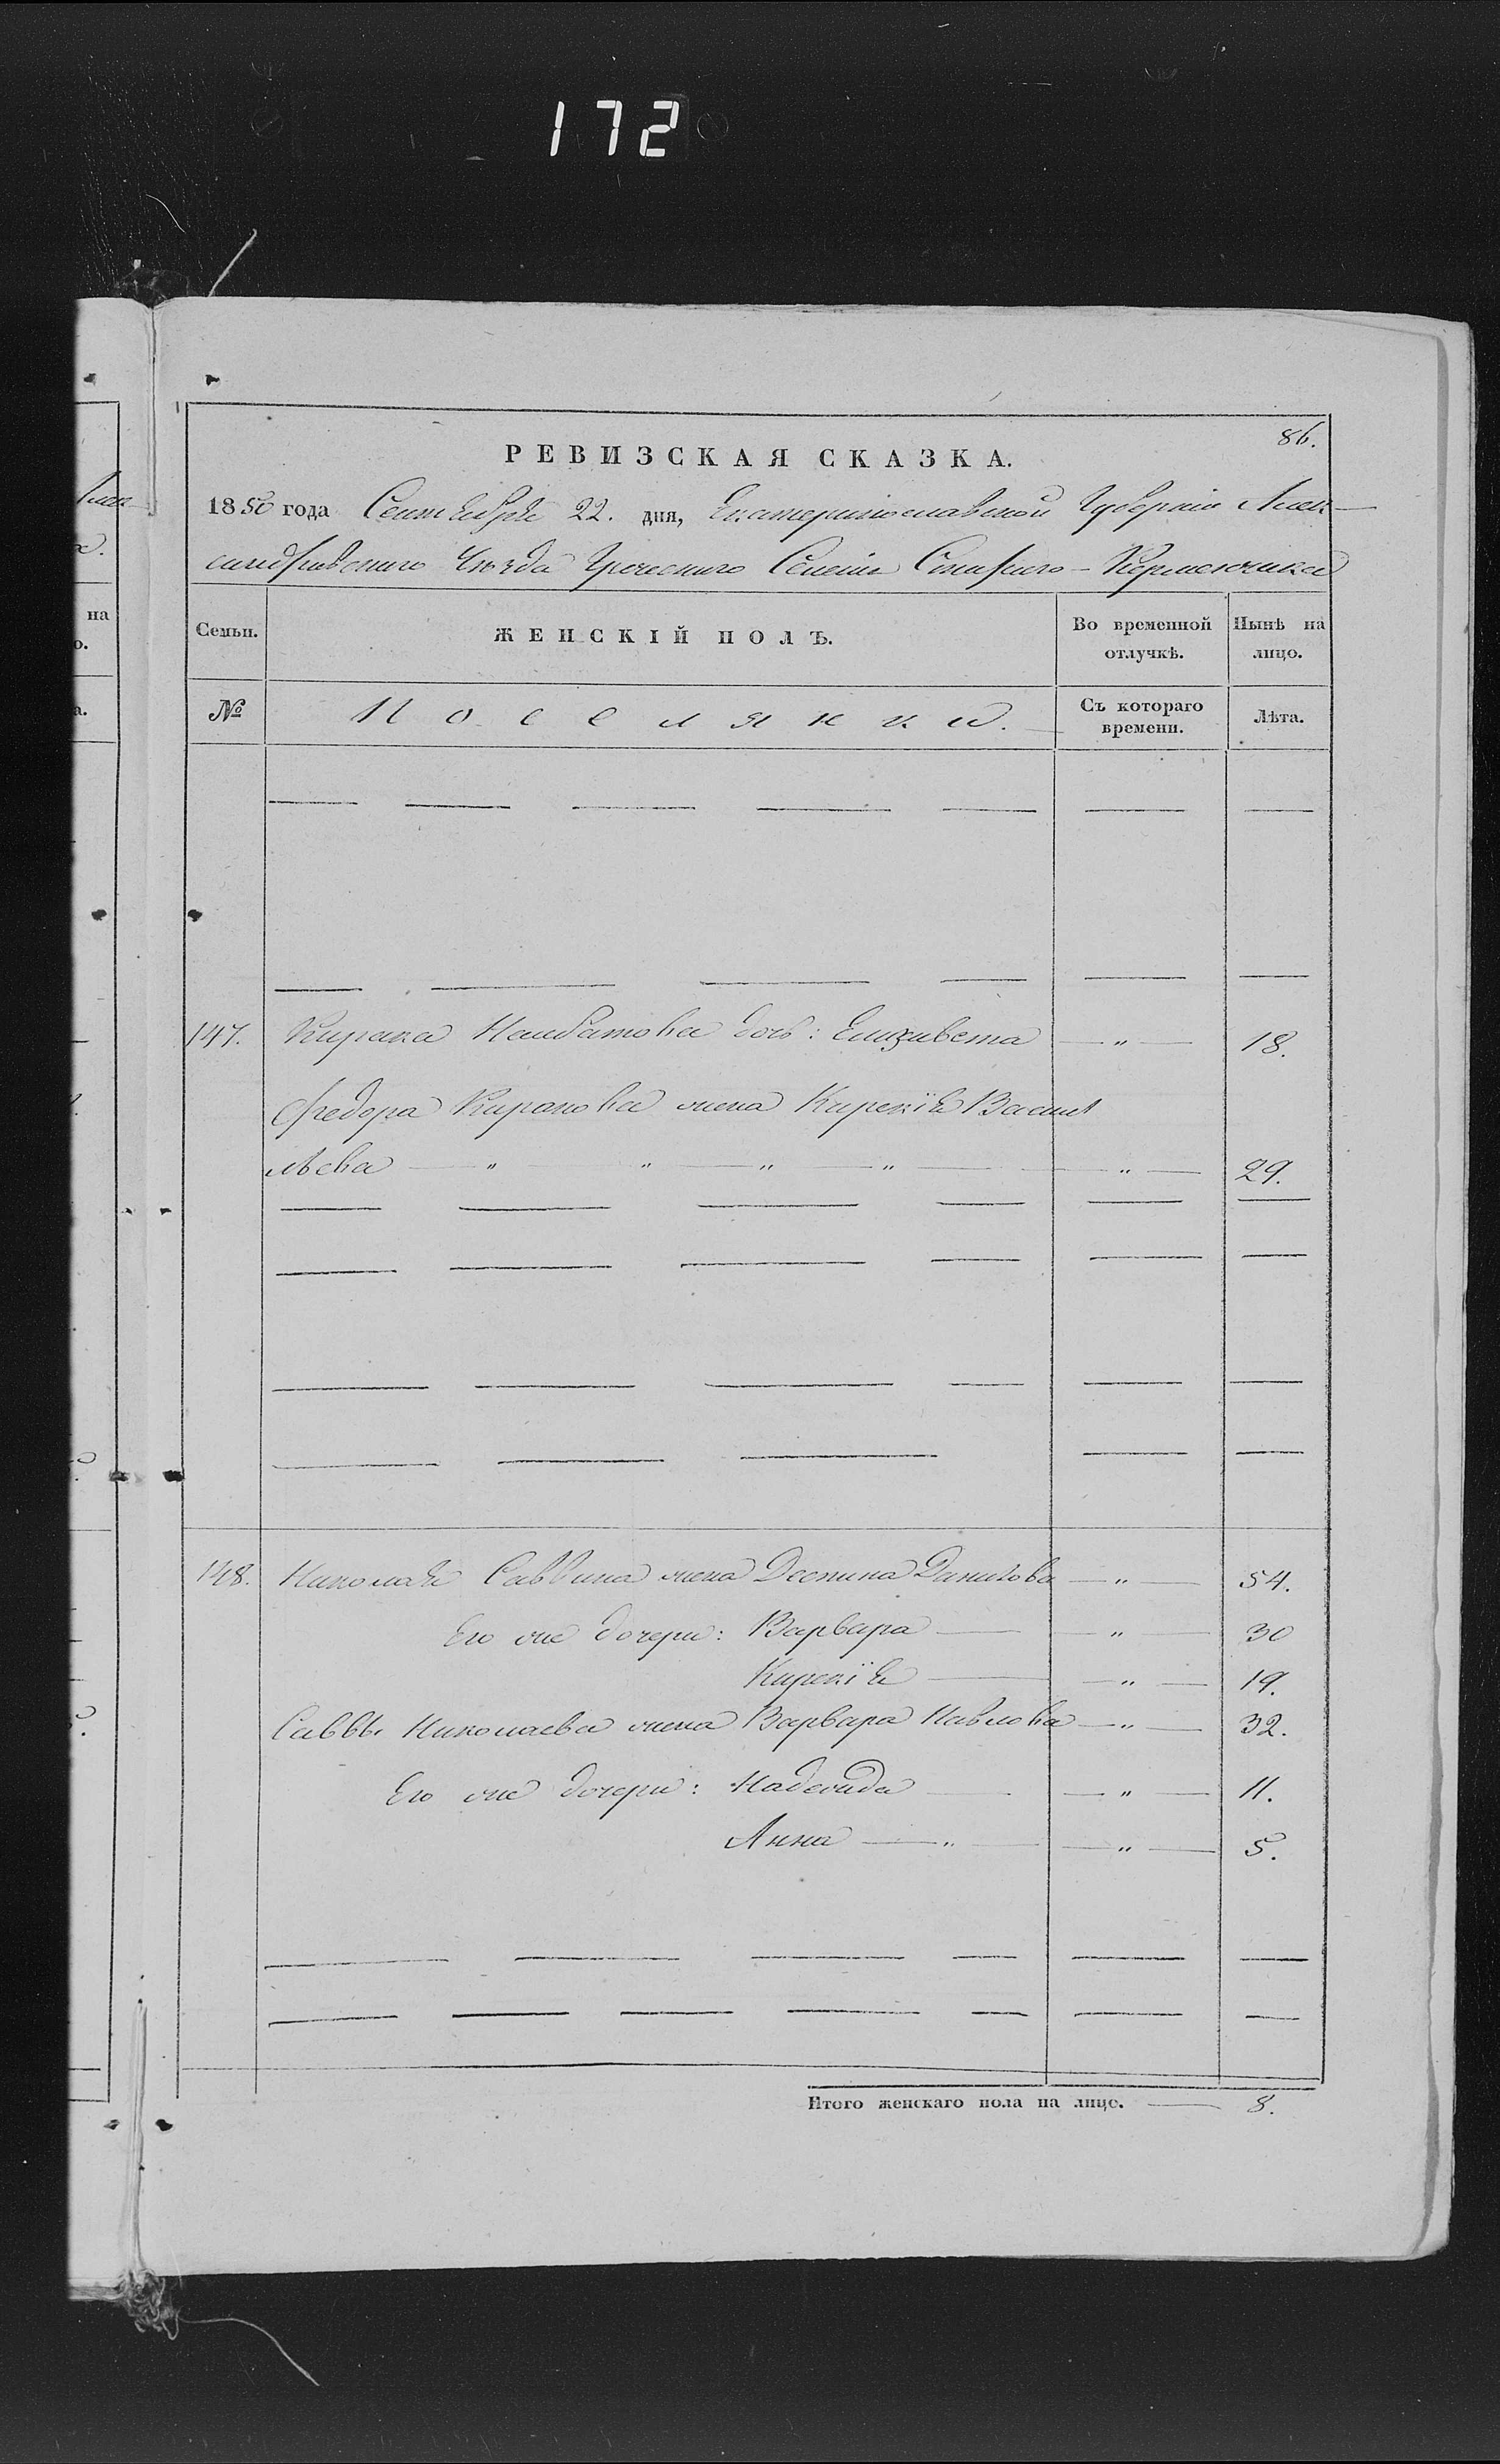 172
86.
РЕВИЗСКАЯ СКАЗКА.
1850 года Сентября 22. дня, Екатеринославской Губерніи Алек-
сандровского Уѣзда Греческого Селенія Стараго-Керменчика
на
о.
Семьи.
ЖЕНСКІЙ ПОЛЪ.
Во временной отлучкѣ.
Нынѣ на лицо.
а.
№
Поселянки.
Съ котораго времени.
Лѣта.
147. Кирака Налбатова дочь: Елизавета — „ — 18.
Федора Киракова жена Кирекія Васил
льева — „ „ — „ — „ — — „ — 29.
148. Николая Саввина жена Деспина Данилова — „ — 54.
Его же дочери: Варвара — — „ — 30
Кирекія — — „ — 19.
Саввы Николаева жена Варвара Павлова — „ — 32.
Его же дочери: Надежда — — „ — 11.
Анна — „ — — „ — 5.
Итого женскаго пола на лице. — 8.